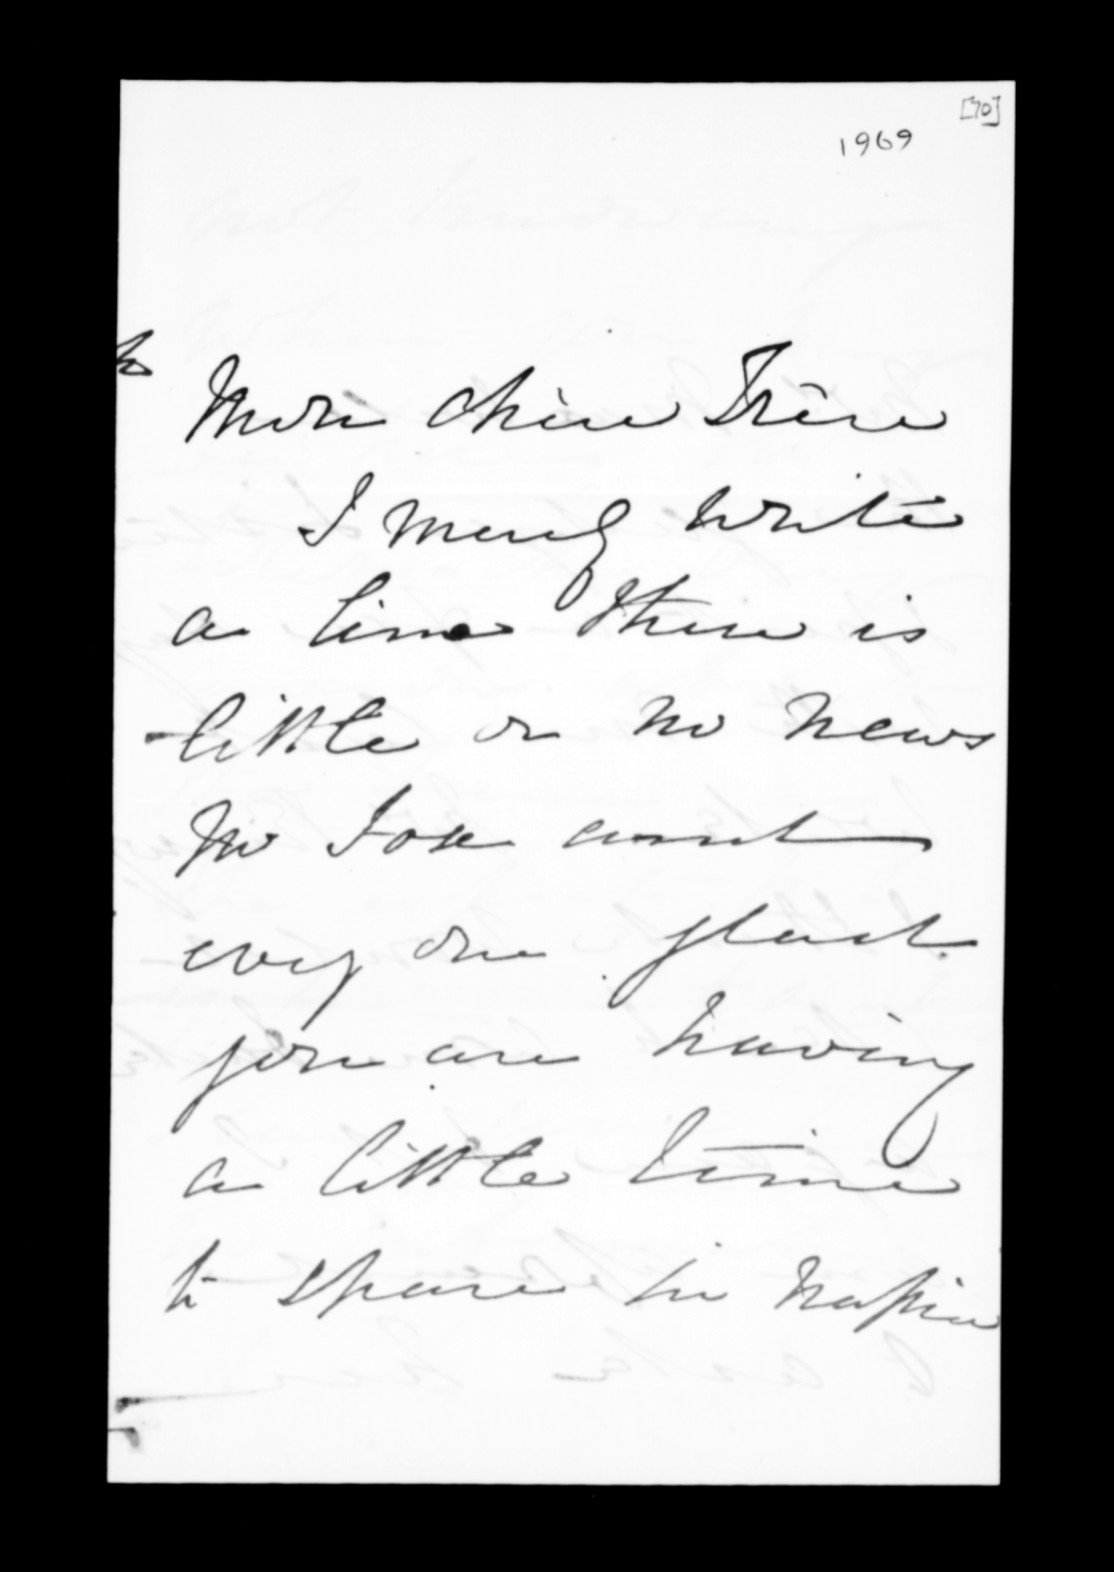 [70]
1969
to
Mon chère Frère
I merely write
a line there is
little or no news
Mr Fox and
every one glad
you are having
a little time
to spare in Napier